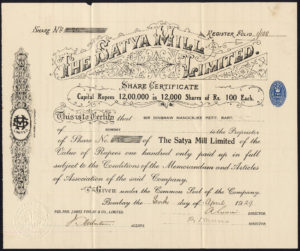 SHARE No
REGISTER FOLIO
THE SATYA MILL
LIMITED.
SHARE CERTIFICATE
Capital Rupees 12,00,000 in 12,000 Shares of Rs. 100 Each.
This is to Certify that SIR DINSHAW MANOCKJEE PETIT, BART.
of BOMBAY is the Proprietor
of Share No The Satya Mill Limited of the
Value of Rupees one hundred only paid up in full
subject to the Conditions of the Memorandum and Articles
of Association of the said Company.
Given under the Common Seal of the Company.
Bombay the day of April 1929
DIRECTOR
AGENTS